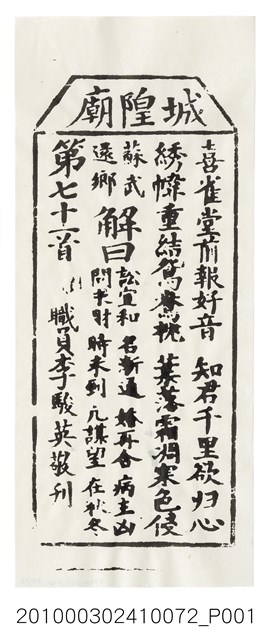 城隍廟
喜雀堂前報好音　知君千里欲归心
綉幃重結鴛鴦枕　葉落霜凋寒色侵
蘇武還鄉
解曰　訟宜和　名漸通　婚再合　病主凶
問求財　時未到　凡謀望　在秋冬
第七十一首　職員李駿英敬刊
201000302410072_P001